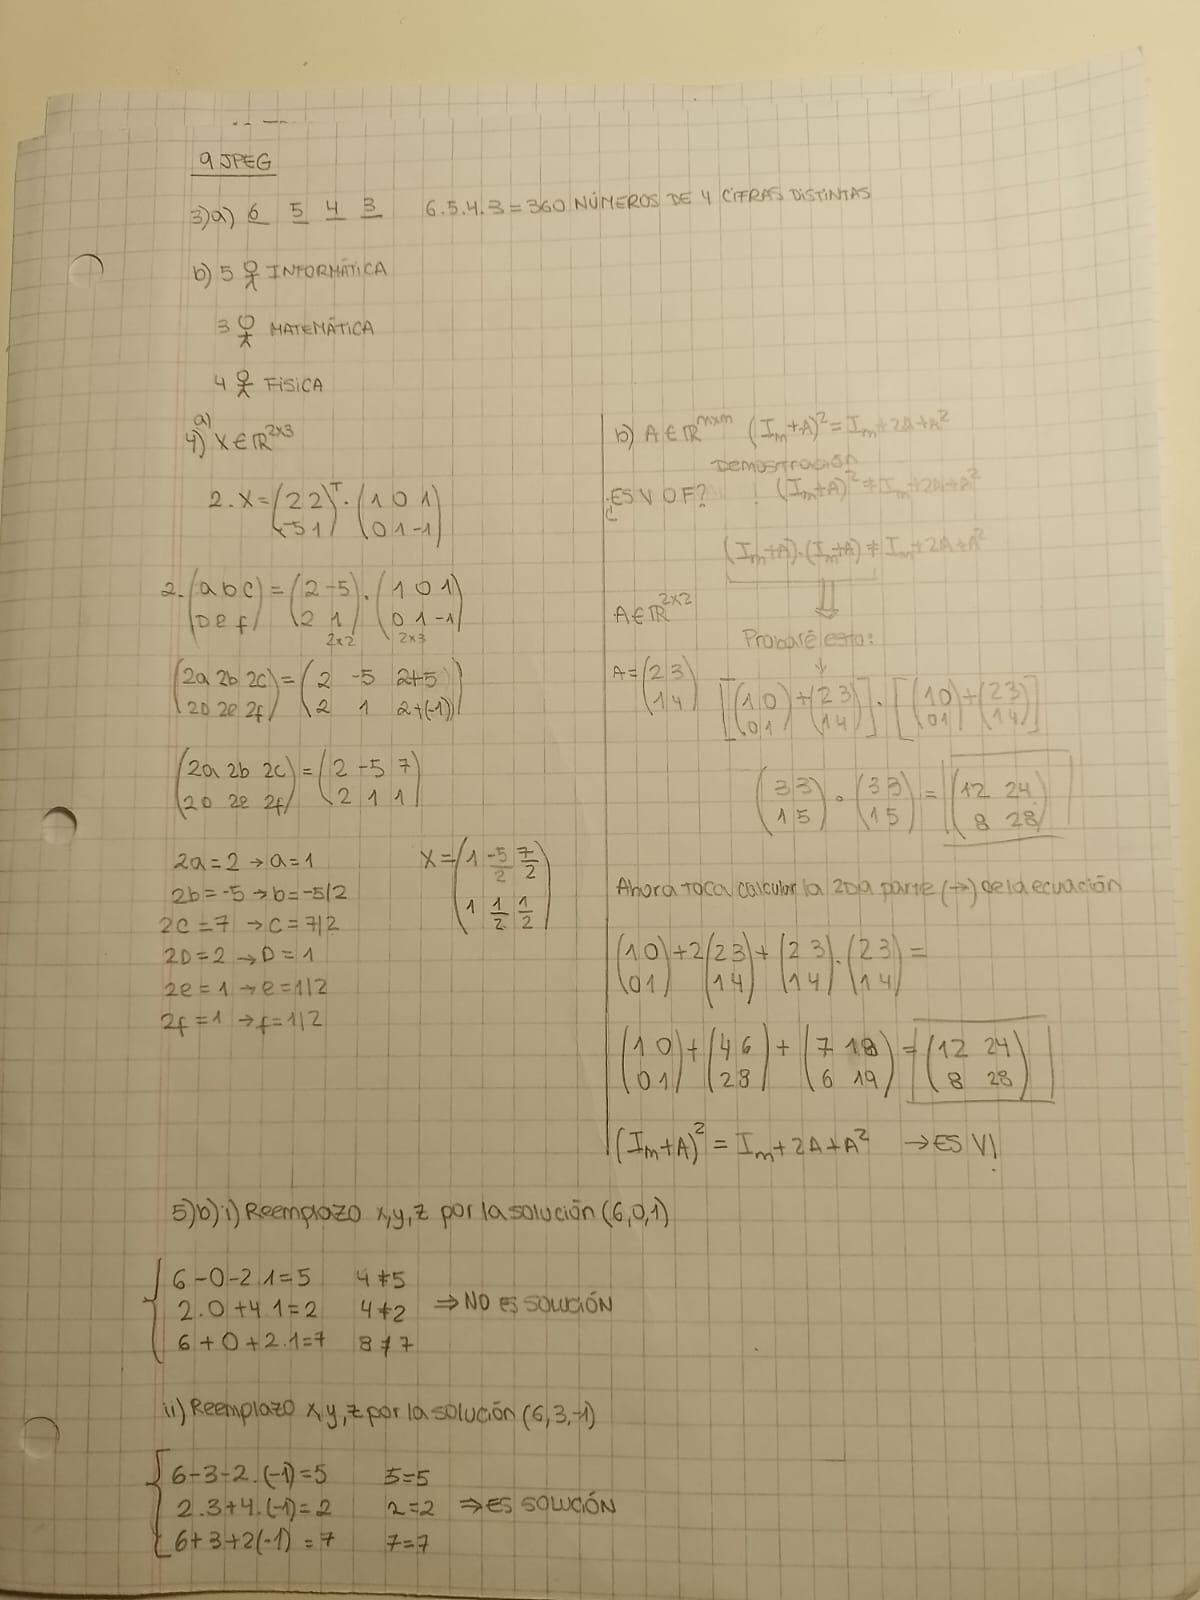 9 JPEG
3)a) 6 5 4 3 6.5.4.3=360 NÚMEROS DE 4 CIFRAS DISTINTAS
b) 5 INFORMÁTICA
3 MATEMÁTICA
4 FÍSICA
a)
4) X∈ℝ^2x3
2.X=(2 2)^T.(1 0 1)
(-5 1) (0 1 -1)
2.(a b c)=(2 -5).(1 0 1)
(D e f) (2 1) (0 1 -1)
2x2 2x3
(2a 2b 2c)=(2 -5 2+5)
(2D 2e 2f) (2 1 2+(-1))
(2a 2b 2c)=(2 -5 7)
(2D 2e 2f) (2 1 1)
2a=2→a=1
2b=-5→b=-5/2
2c=7→c=7/2
2D=2→D=1
2e=1→e=1/2
2f=1→f=1/2
X=(1 -5/2 7/2)
(1 1/2 1/2)
b) A∈ℝ^mxm (Im+A)²=Im+2A+A²
DEMOSTRACIÓN
¿ES V O F? (Im+A)²≠Im+2A+A²
(Im+A).(Im+A)≠Im+2A+A²
A∈ℝ^2x2
Probaré esto:
A=(2 3) [(1 0)+(2 3)].[(1 0)+(2 3)]
(1 4) [(0 1) (1 4)] [(0 1) (1 4)]
(3 3).(3 3)=(12 24)
(1 5) (1 5) (8 28)
Ahora toca calcular la 2da parte (→) de la ecuación
(1 0)+2(2 3)+(2 3).(2 3)=
(0 1) (1 4) (1 4) (1 4)
(1 0)+(4 6)+(7 18)=(12 24)
(0 1) (2 8) (6 19) (8 28)
(Im+A)²=Im+2A+A² →ES V!
5)b)i) Reemplazo x,y,z por la solución (6,0,1)
6-0-2.1=5 4≠5
2.0+4.1=2 4≠2 ⇒NO ES SOLUCIÓN
6+0+2.1=7 8≠7
ii) Reemplazo x,y,z por la solución (6,3,-1)
6-3-2.(-1)=5 5=5
2.3+4.(-1)=2 2=2 ⇒ES SOLUCIÓN
6+3+2(-1)=7 7=7